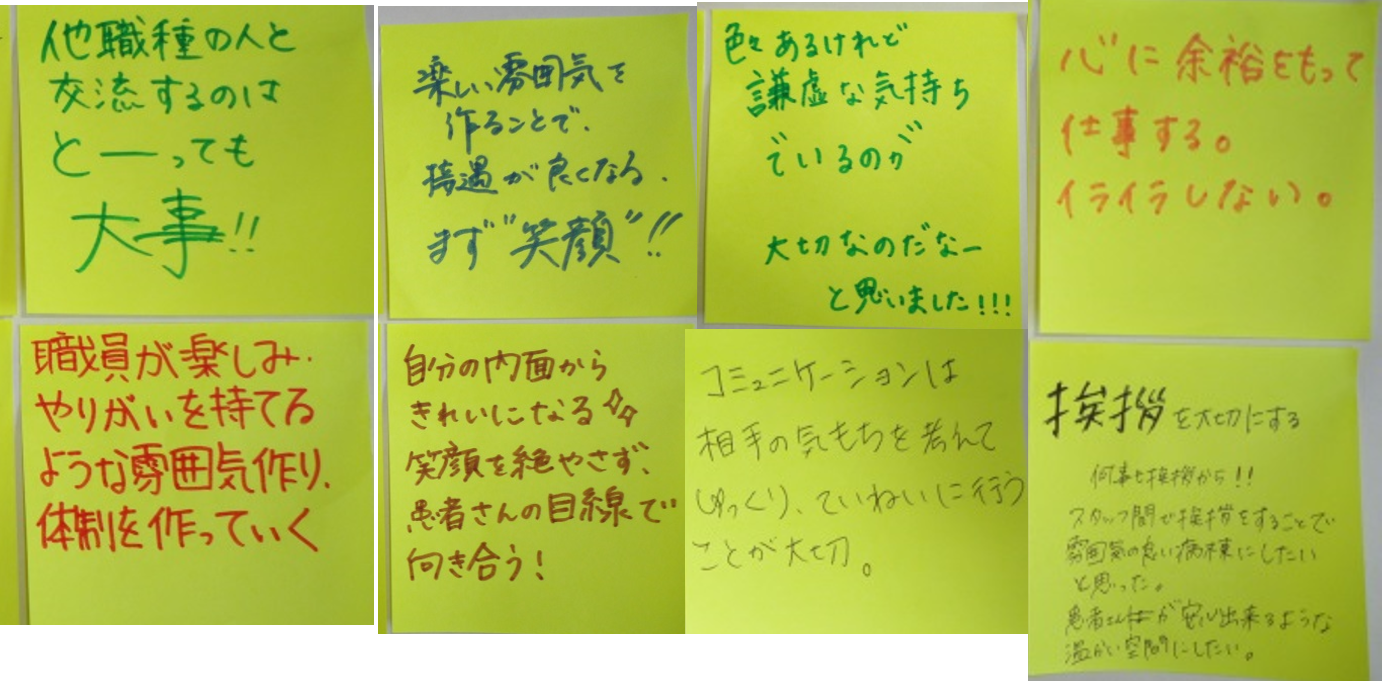 他職種の人と
交流するのは
とーっても
大事!!
楽しい雰囲気を
作ることで、
接遇が良くなる.
まず"笑顔"!!
色々あるけれど
謙虚な気持ち
でいるのが
大切なのだなー
と思いました!!!
心に余裕をもって
仕事する。
イライラしない。
職員が楽しみ.
やりがいを持てる
ような雰囲気作り.
体制を作っていく
自分の内面から
きれいになる
笑顔を絶やさず、
患者さんの目線で
向き合う!
コミュニケーションは
相手の気もちを考えて
ゆっくり、ていねいに行う
ことが大切。
挨拶を大切にする
何事も挨拶から!!
スタッフ間で挨拶をすることで
雰囲気の良い病棟にしたい
と思った。
患者さんが安心出来るような
温かい空間にしたい。